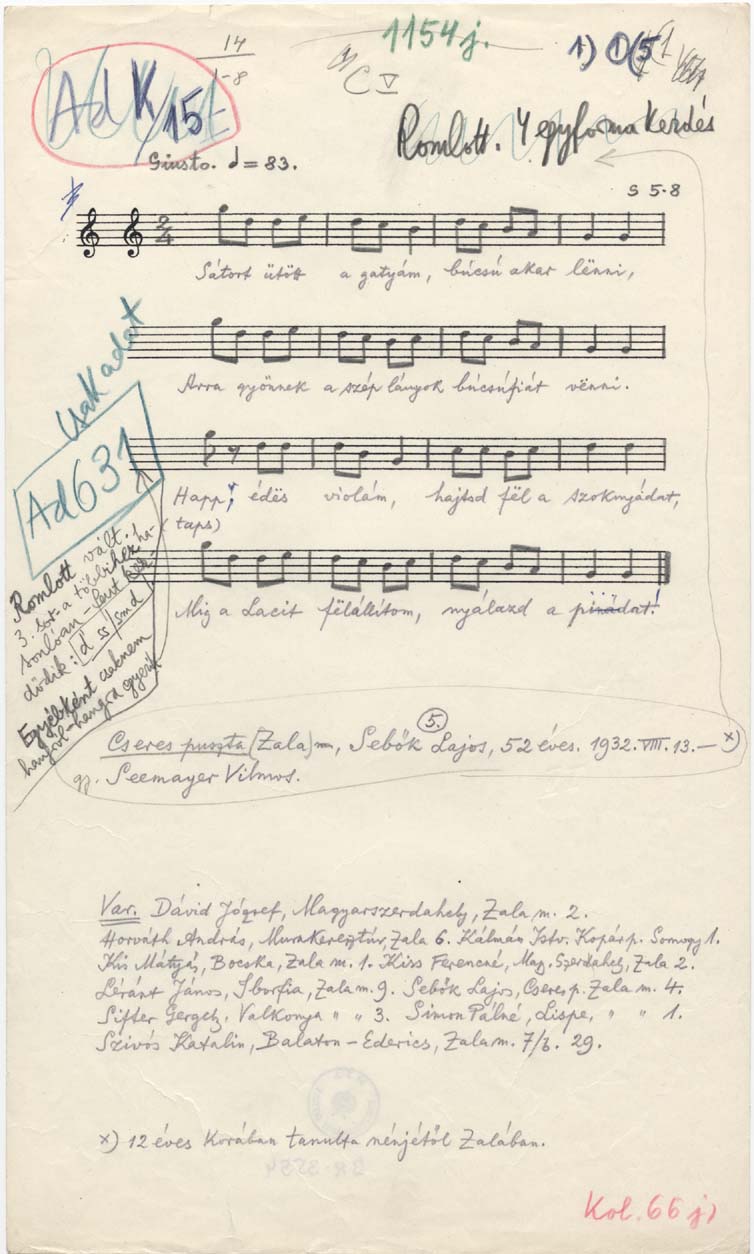 14
1154 j.
1) ① (5
1-8
C V
Ad K/15
Romlott. 4 egyforma kezdés
Giusto. = 83.
S 5-8
2/4
Sátort ütött a gatyám, búcsú akar lënni,
Arra gyönnek a szép lányok búcsúfiát vënni.
csak adat
Ad 631
Happ, édës violám, hajtsd fël a szoknyádat,
(taps)
Mig a Lacit fëlállítom, nyálazd a pinádat!
Romlott vált.
3. sor a többihez ha-
sonlóan fent kez-
dődik: d' ss | smd
Egyébként csaknem
hangról-hangra egyezik
Cseres puszta (Zala) m, Sebők Lajos, 52 éves. 1932. VIII. 13. — x)
5.
gy. Seemayer Vilmos.
Var. Dávid József, Magyarszerdahely, Zala m. 2.
Horváth András, Murakeresztúr, Zala 6. Kálmán Istv. Kopárp. Somogy 1.
Kis Mátyás, Bocska, Zala m. 1. Kiss Ferencné, Mag. Szerdahely, Zala 2.
Léránt János, Iborfia, Zala m. 9. Sebők Lajos, Cseres p. Zala m. 4.
Sifter Gergely, Valkonya " " 3. Simon Pálné, Lispe, " " 1.
Szivós Katalin, Balaton-Ederics, Zala m. 7/b. 29.
x) 12 éves korában tanulta nénjétől Zalában.
Kol. 66 j)